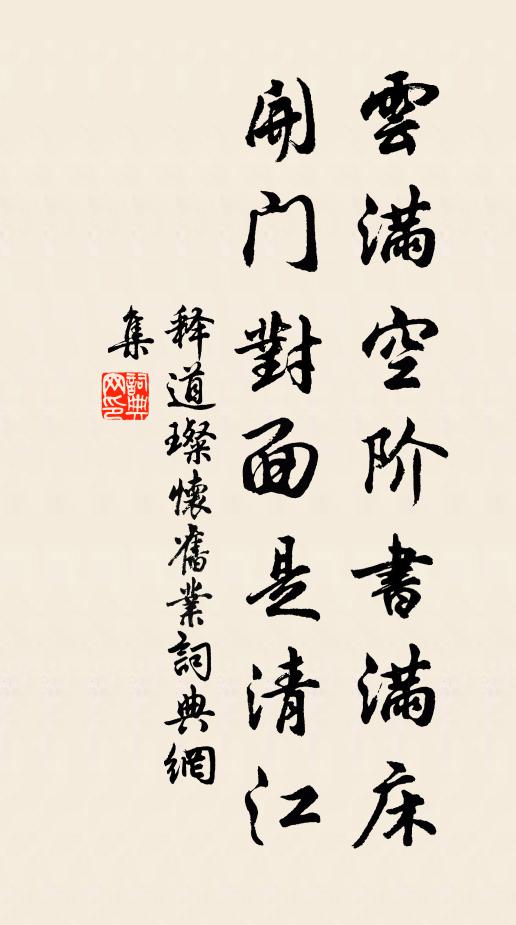 雲滿空阶書滿床
開门對面是清江
释道璨懷舊業詞典網
集
詞典
网印